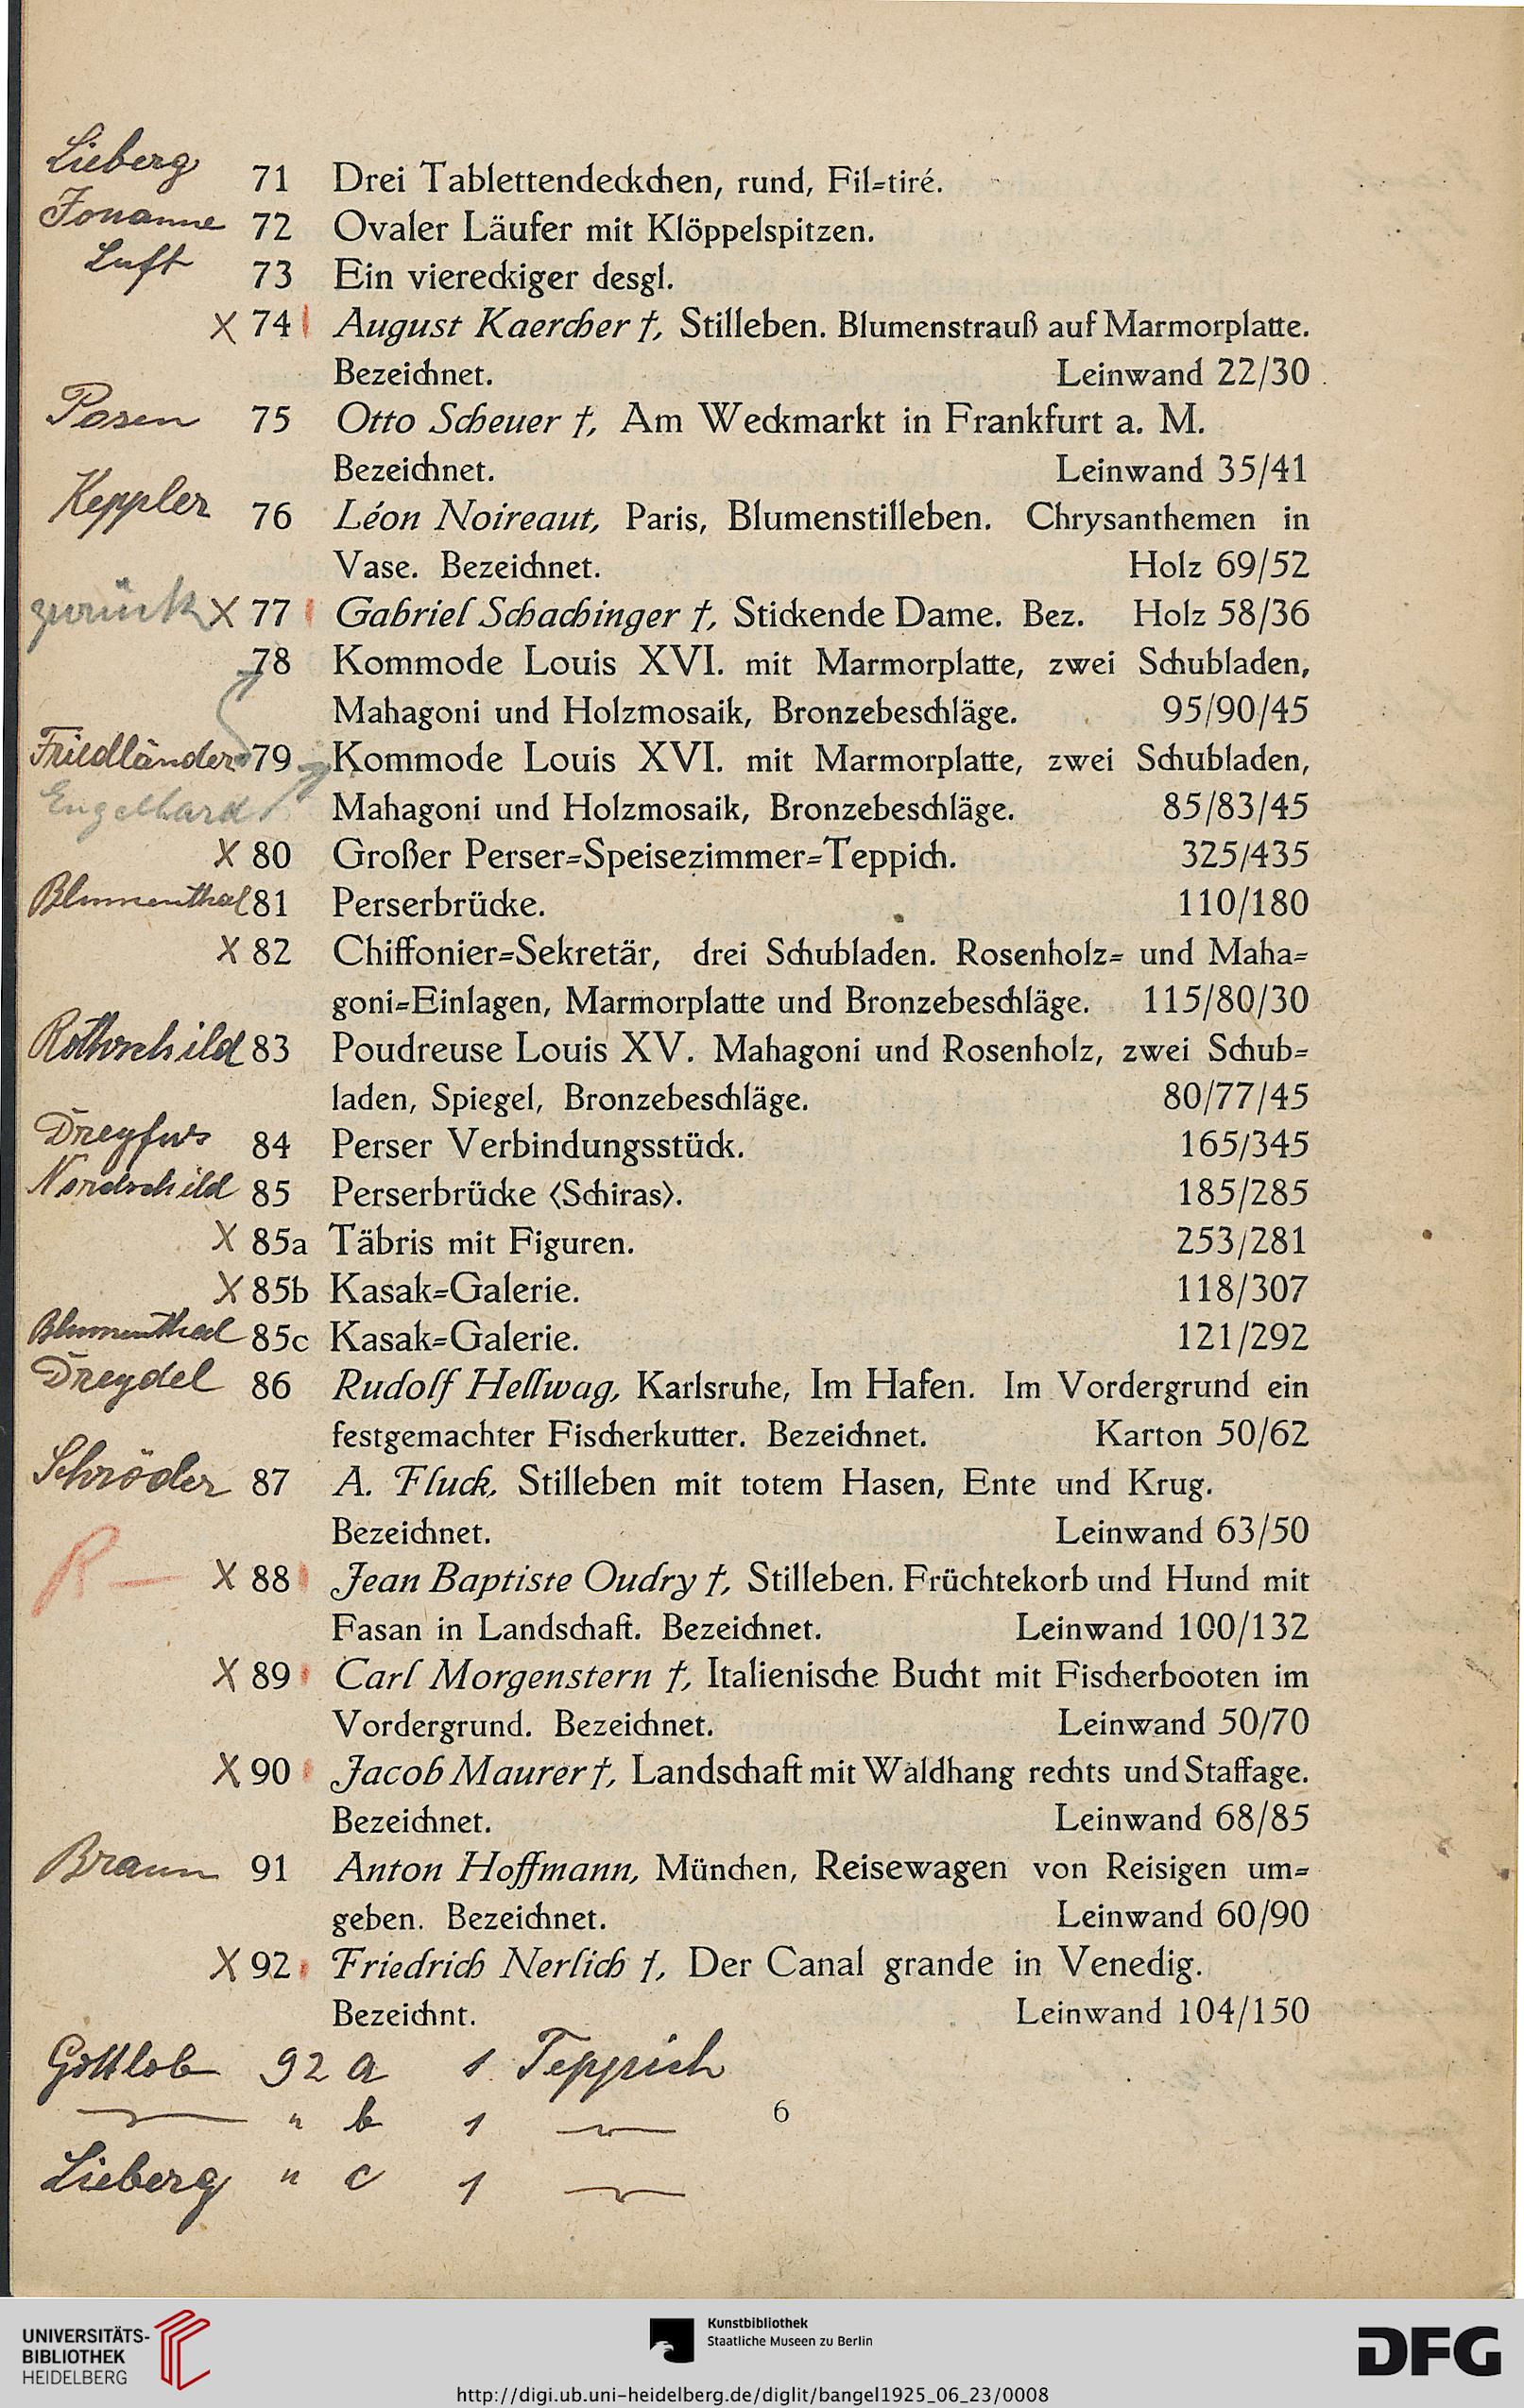 Lieberg 71 Drei Tablettendeckchen, rund, Fil-tiré.
72 Ovaler Läufer mit Klöppelspitzen.
Luft 73 Ein viereckiger desgl.
X 74 August Kaercher †, Stilleben. Blumenstrauß auf Marmorplatte.
Bezeichnet. Leinwand 22/30
Posen 75 Otto Scheuer †, Am Weckmarkt in Frankfurt a. M.
Bezeichnet. Leinwand 35/41
Keppler 76 Léon Noireaut, Paris, Blumenstilleben. Chrysanthemen in
Vase. Bezeichnet. Holz 69/52
zurück X 77 Gabriel Schachinger †, Stickende Dame. Bez. Holz 58/36
78 Kommode Louis XVI. mit Marmorplatte, zwei Schubladen,
Mahagoni und Holzmosaik, Bronzebeschläge. 95/90/45
Friedländer 79 Kommode Louis XVI. mit Marmorplatte, zwei Schubladen,
Engelhard Mahagoni und Holzmosaik, Bronzebeschläge. 85/83/45
X 80 Großer Perser-Speisezimmer-Teppich. 325/435
Blumenthal 81 Perserbrücke. 110/180
X 82 Chiffonier-Sekretär, drei Schubladen. Rosenholz- und Maha-
goni-Einlagen, Marmorplatte und Bronzebeschläge. 115/80/30
Rothschild 83 Poudreuse Louis XV. Mahagoni und Rosenholz, zwei Schub-
laden, Spiegel, Bronzebeschläge. 80/77/45
Dreyfus 84 Perser Verbindungsstück. 165/345
Nordschild 85 Perserbrücke (Schiras). 185/285
X 85a Täbris mit Figuren. 253/281
X 85b Kasak-Galerie. 118/307
Blumenthal 85c Kasak-Galerie. 121/292
Dreydel 86 Rudolf Hellwag, Karlsruhe, Im Hafen. Im Vordergrund ein
festgemachter Fischerkutter. Bezeichnet. Karton 50/62
Schröder 87 A. Fluck, Stilleben mit totem Hasen, Ente und Krug.
Bezeichnet. Leinwand 63/50
R — X 88 Jean Baptiste Oudry †, Stilleben. Früchtekorb und Hund mit
Fasan in Landschaft. Bezeichnet. Leinwand 100/132
X 89 Carl Morgenstern †, Italienische Bucht mit Fischerbooten im
Vordergrund. Bezeichnet. Leinwand 50/70
X 90 Jacob Maurer †, Landschaft mit Waldhang rechts und Staffage.
Bezeichnet. Leinwand 68/85
Braun 91 Anton Hoffmann, München, Reisewagen von Reisigen um-
geben. Bezeichnet. Leinwand 60/90
X 92 Friedrich Nerlich †, Der Canal grande in Venedig.
Bezeichnt. Leinwand 104/150
Gottlob 92 a 1 Teppich
— " b 1 —
6
Lieberg " c 1 —
UNIVERSITÄTS-
BIBLIOTHEK
HEIDELBERG
Kunstbibliothek
Staatliche Museen zu Berlin
DFG
http://digi.ub.uni-heidelberg.de/diglit/bangel1925_06_23/0008